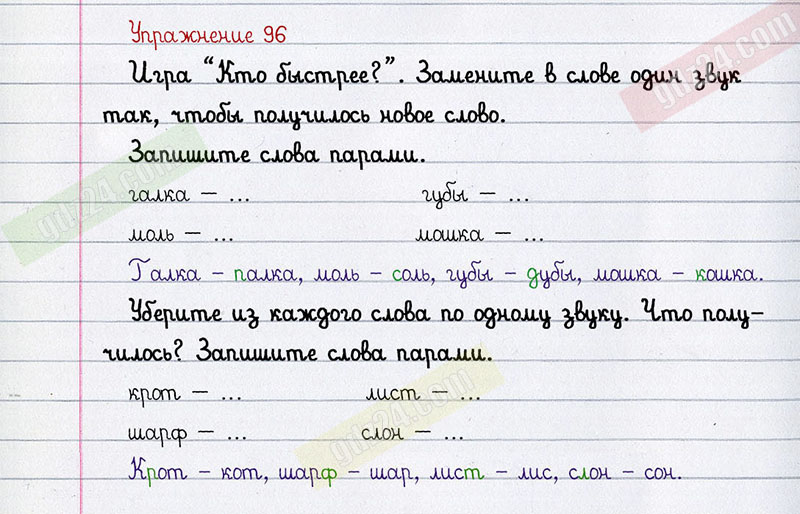 Упражнение 96
Игра “Кто быстрее?”. Замените в слове один звук
так, чтобы получилось новое слово.
Запишите слова парами.
галка – ... губы – ...
моль – ... мошка – ...
Галка – палка, моль – соль, губы – дубы, мошка – кошка.
Уберите из каждого слова по одному звуку. Что полу-
чилось? Запишите слова парами.
крот – ... лист – ...
шарф – ... слон – ...
Крот – кот, шарф – шар, лист – лис, слон – сон.
gdz24.com
gdz24.com
gdz24.com